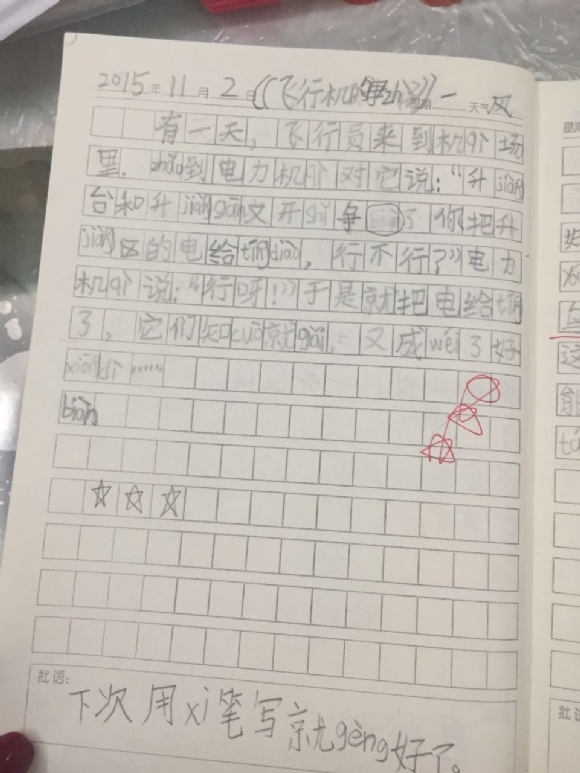 2015年11月2日《飞行机的争zhí》星期一 天气风
有一天,飞行员来到机价场
里,zhǎo到电力机价对它说:“升jiàng
台和升jiànggān文开shǐ争 了你把升
jiàng区的电给tíngdiào,行不行?”电力
机价说:“行呀!”于是就把电给tíng
了,它们知cuò就gǎi,又成wéi了好
xiōngdì……
biàn
☆☆☆
批语:
下次用xì笔写就gèng好了。